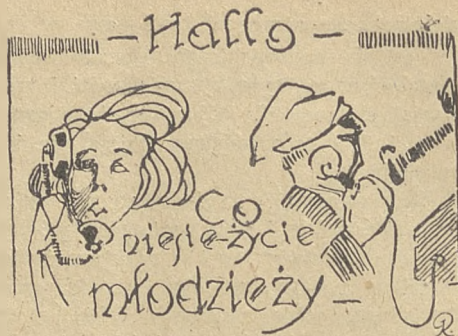 – Hallo –
Co
niesie-życie
młodzieży –